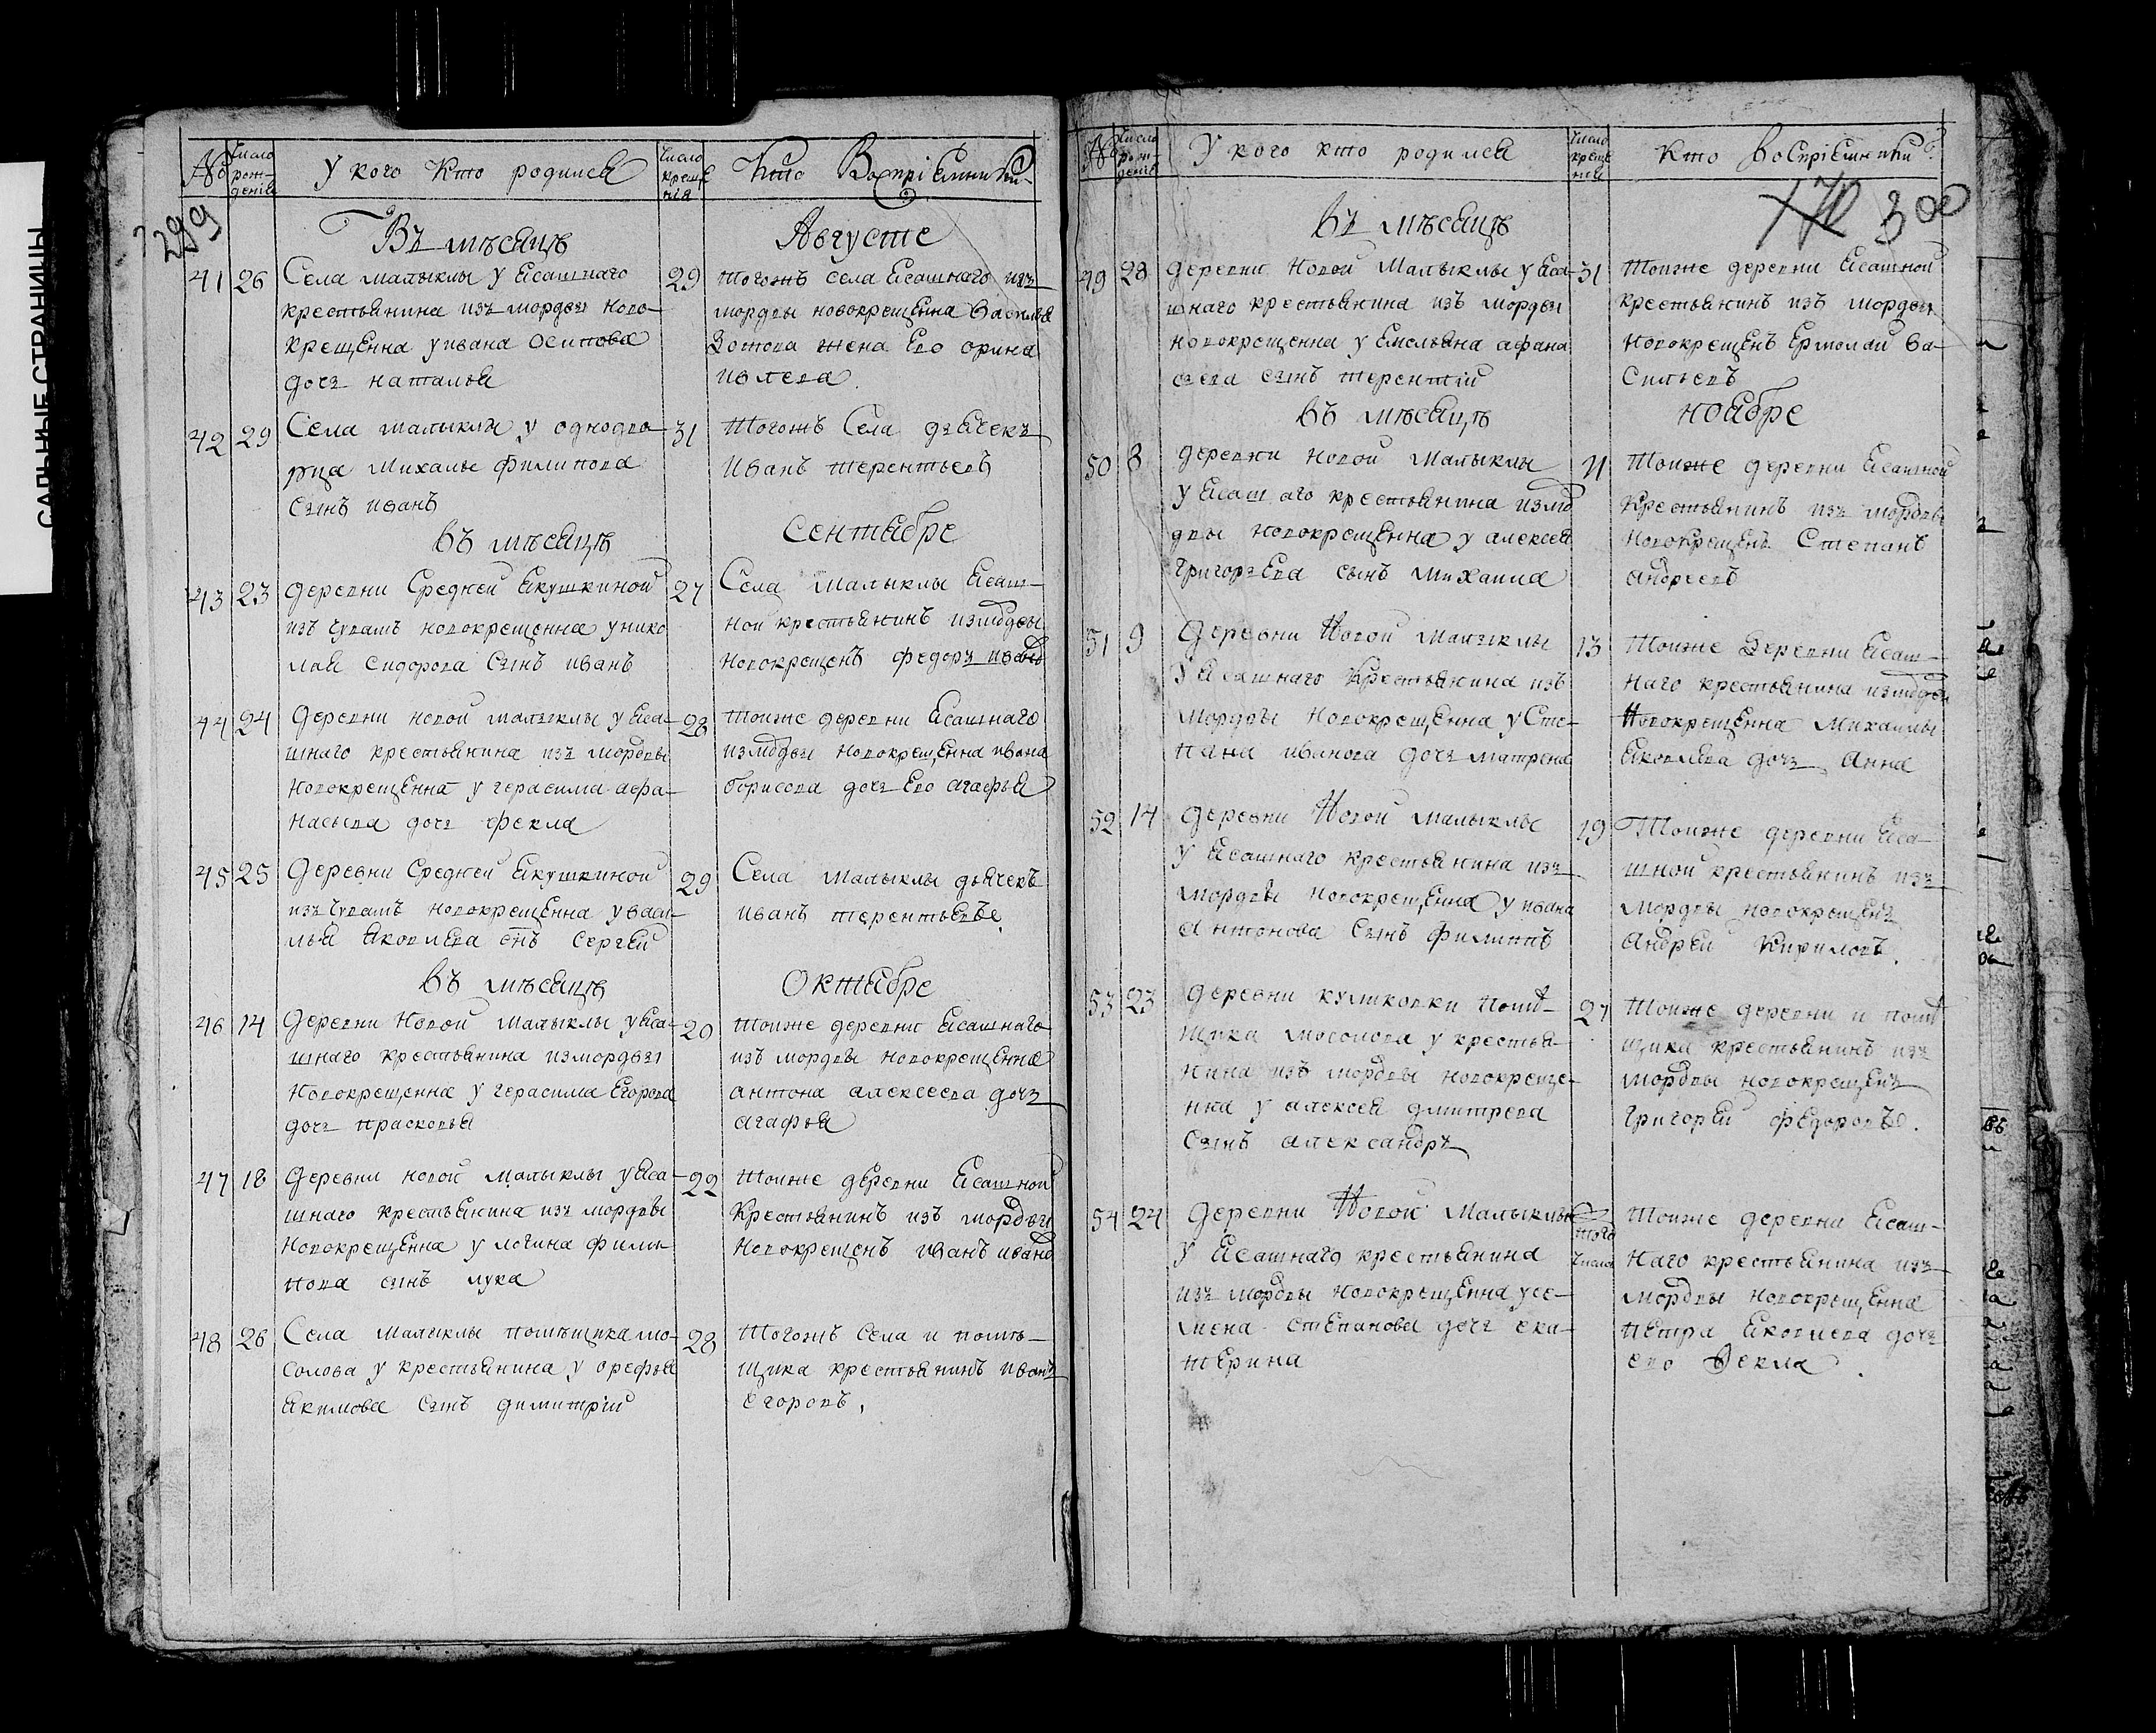 №
Число рождениѣ
У кого Кто родился
Число крещенія
Кто Воспріемники
299
Въ мѣсяцѣ Августе
41 26 Села малыклы у ясашнаго
крестьянина изъ мордвы ново-
крещенна у ивана осипова
дочь наталья
29 тогожъ села ясашнаго изъ
мордвы новокрещенна василья
Зотова жена Его орина
ивлева.
42 29 Села малыклы у однодво-
рца Михалы филипова
сынъ иванъ
31 тогожъ Села дьячекъ
Иванъ терентьевъ
въ мѣсяцѣ Сентябре
43 23 деревни Средней Якушкиной
изъ Чувашъ новокрещенна у нико
лая сидорова Сынъ иванъ
27 Села малыклы ясаш-
ной крестьянинъ измордвы
новокрещенъ федоръ ивановъ
44 24 деревни новой малыклы у яса-
шнаго крестьянина изъ мордвы
новокрещенна у герасима афа-
насьева дочь фекла
28 тоиже деревни ясашнаго
измордвы новокрещенна ивана
борисова дочь Его агафья
45 25 деревни Средней якушкиной
изъ чувашъ новокрещенна у васи-
лья яковлева снъ сергеи
29 Села малыклы дьячекъ
иванъ терентьевъ
въ мѣсяцѣ Октябре
46 14 Деревни Новой малыклы у яса-
шнаго крестьянина измордвы
новокрещенна у герасима Егорова
дочь прасковья
20 тоиже деревни ясашнаго
изъ мордвы новокрещенна
антона алексеева дочь
агафья
47 18 деревни новой малыклы у яса-
шнаго крестьянина изъ мордвы
новокрещенна у логина фили-
пова сынъ лука
22 тоиже деревни ясашной
крестьянинъ изъ мордвы
новокрещенъ иванъ ивановъ
48 26 Села малыклы помѣщика мо-
солова у крестьянина у орефья
якимова сынъ димитрiй
28 тогожъ села и помѣ-
щика крестьянинъ иванъ
егоровъ.
№
Число рождениѣ
У кого кто родился
Число крещениѣ
Кто Воспріемники
170 300
въ мѣсяцѣ
49 28 деревни Новой Малыклы у яса-
шнаго крестьянина изъ мордвы
новокрещенна у емельяна афана
сьева сынъ терентiй
31 тоиже деревни ясашной
крестьянинъ изъ мордвы
новокрещенъ Ермолаи Ва-
сильевъ
въ мѣсяцѣ ноябре
50 8 деревни новой малыклы
у ясаш аго крестьянина измо
двы новокрещенна у алексея
григорьева сынъ михаила
11 тоиже деревни ясашной
крестьянинъ изъ мордвы
новокрещенъ Степанъ
андреевъ
51 9 деревни Новой малыклы
у ясашнаго крестьянина изъ
мордвы новокрещенна у Сте-
пана иванова дочь матрена
13 тоиже деревни ясаш-
наго крестьянина измордвы
новокрещенна михаилы
яковлева дочь Анна
52 14 деревни Новой малыклы
у ясашнаго крестьянина изъ
мордвы новокрещенна у ивана
антонова Сынъ филиппъ
19 тоиже деревни яса-
шной крестьянинъ изъ
мордвы новокрещенъ
андреи кириловъ.
53 23 деревни куликовки помѣ-
щика мосолова у крестья-
нина изъ мордвы новокреще-
нна у алексея дмитрева
Сынъ александръ
27 тоиже деревни и помѣ
щика крестьянинъ изъ
мордвы новокрещенъ
григореи федоровъ.
54 24 деревни Новой малыклы
у ясашнаго крестьянина
изъ мордвы новокрещенна у се-
мена степанова дочь ека-
терина
того числа
тоиже деревни ясаш-
наго крестьянина изъ
мордвы новокрещенна
петра яковлева дочь
его фекла.
САЛЬНЫЕ СТРАНИЦЫ